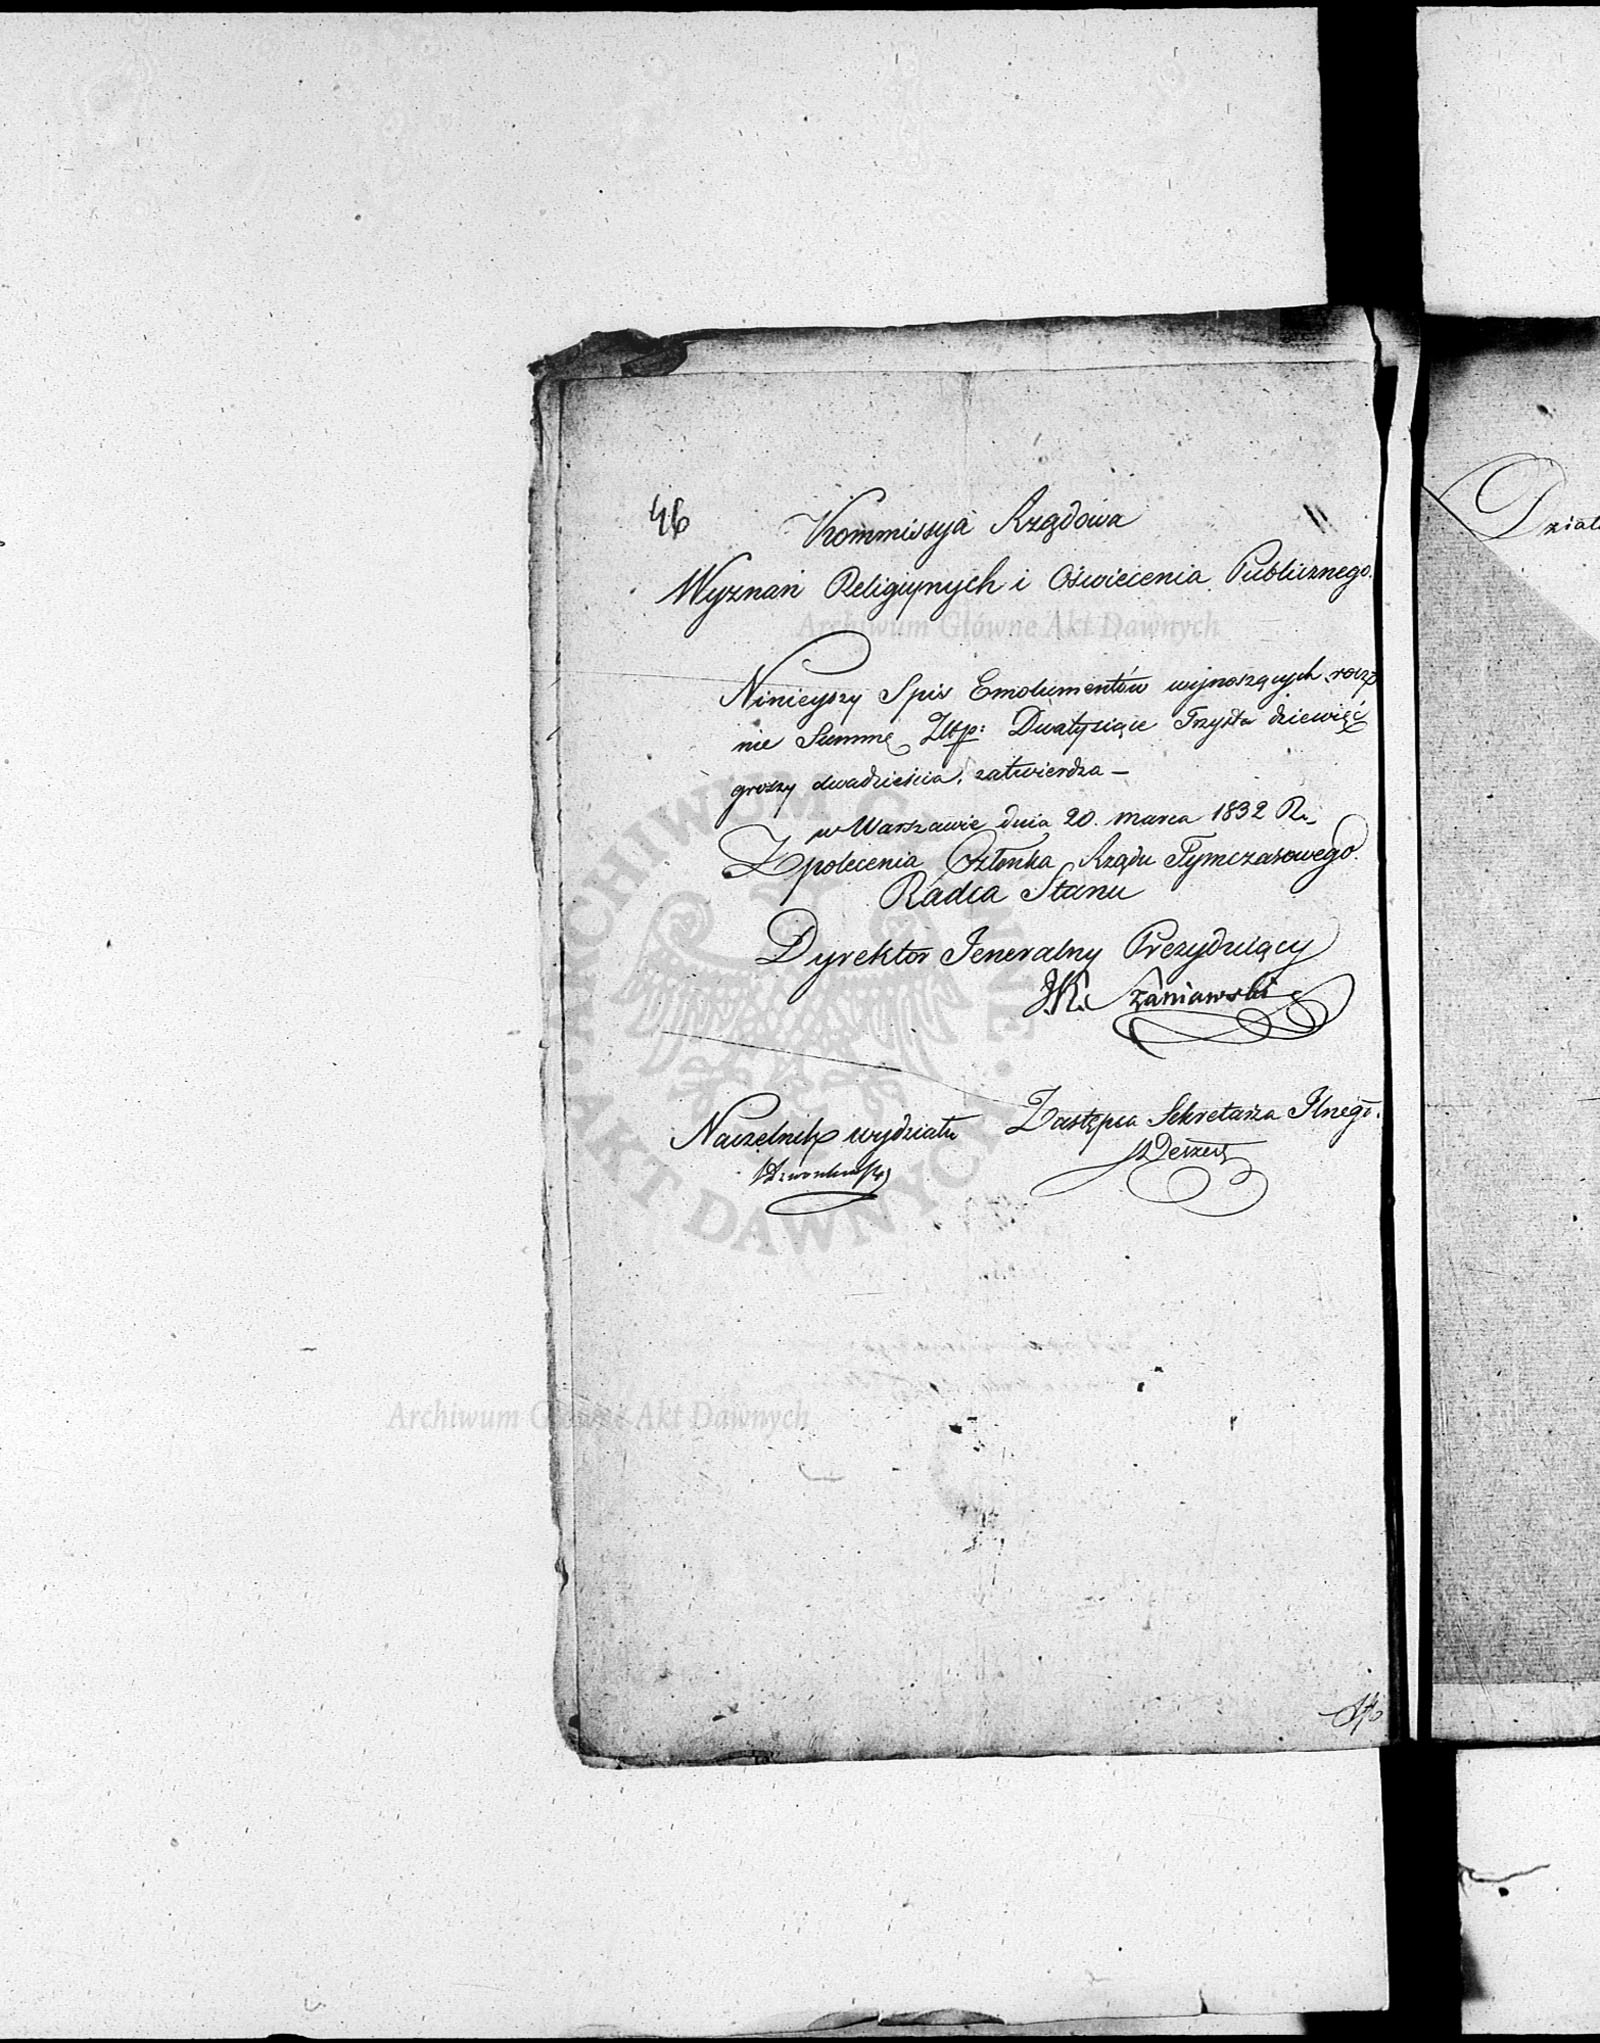 46
Kommissya Rządowa
Wyznań Religiynych i Oświecenia Publicznego.
Ninieyszy Spis Emolumentów wynoszących rocz
nie Summę Złtp: Dwatysiące Trzysta dziewięć
groszy dwadzieścia, zatwierdza —
w Warszawie dnia 20. marca 1832 R.
Z polecenia Członka Rządu Tymczasowego.
Radca Stanu
Dyrektor Jeneralny Prezyduiący
J.K. Szaniawski
Naczelnik wydziału
Zastępca Sekretarza Jlnego.
Działa
Archiwum Główne Akt Dawnych
ARCHIWUM GŁÓWNE AKT DAWNYCH
Archiwum Główne Akt Dawnych